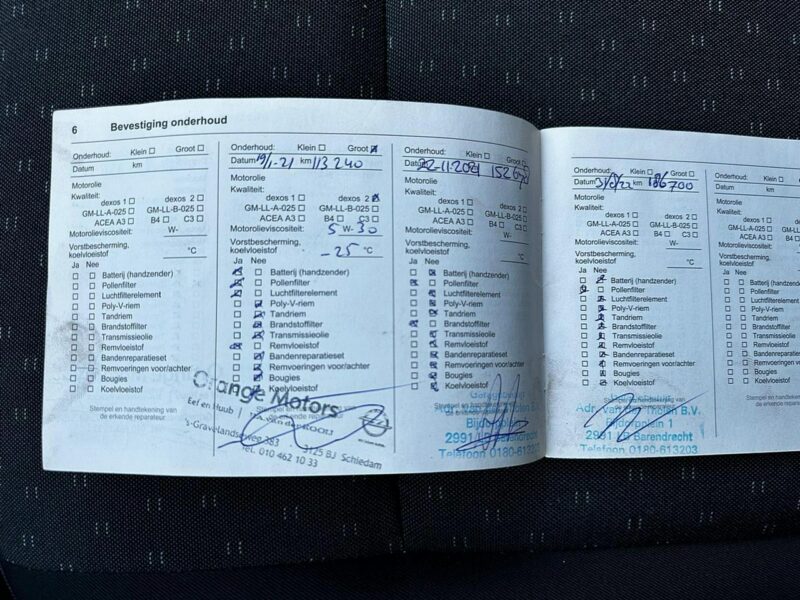 6 Bevestiging onderhoud
Onderhoud: Klein ☐ Groot ☐
Datum km
Motorolie
Kwaliteit:
dexos 1 ☐ dexos 2 ☐
GM-LL-A-025 ☐ GM-LL-B-025 ☐
ACEA A3 ☐ B4 ☐ C3 ☐
Motorolieviscositeit: W-
Vorstbescherming,
koelvloeistof °C
Ja Nee
☐ ☐ Batterij (handzender)
☐ ☐ Pollenfilter
☐ ☐ Luchtfilterelement
☐ ☐ Poly-V-riem
☐ ☐ Tandriem
☐ ☐ Brandstoffilter
☐ ☐ Transmissieolie
☐ ☐ Remvloeistof
☐ ☐ Bandenreparatieset
☐ ☐ Remvoeringen voor/achter
☐ ☐ Bougies
☐ ☐ Koelvloeistof
Stempel en handtekening van
de erkende reparateur
Onderhoud: Klein ☐ Groot ☒
Datum 19/1-21 km 113240
Motorolie
Kwaliteit:
dexos 1 ☐ dexos 2 ☒
GM-LL-A-025 ☐ GM-LL-B-025 ☐
ACEA A3 ☐ B4 ☐ C3 ☐
Motorolieviscositeit: 5 W- 30
Vorstbescherming,
koelvloeistof -25 °C
Ja Nee
☒ ☐ Batterij (handzender)
☒ ☐ Pollenfilter
☒ ☐ Luchtfilterelement
☐ ☒ Poly-V-riem
☐ ☒ Tandriem
☐ ☒ Brandstoffilter
☐ ☒ Transmissieolie
☒ ☐ Remvloeistof
☐ ☒ Bandenreparatieset
☐ ☒ Remvoeringen voor/achter
☐ ☒ Bougies
☐ ☒ Koelvloeistof
Stempel en handtekening van
de erkende reparateur
Orange Motors
Eef en Huub
's-Gravelandseweg 383
3125 BJ Schiedam
Tel. 010 462 10 33
Onderhoud: Klein ☐ Groot ☐
Datum 22-11-2021 152
Motorolie
Kwaliteit:
dexos 1 ☐ dexos 2 ☐
GM-LL-A-025 ☐ GM-LL-B-025 ☐
ACEA A3 ☐ B4 ☐ C3 ☐
Motorolieviscositeit: W-
Vorstbescherming,
koelvloeistof °C
Ja Nee
☐ ☒ Batterij (handzender)
☒ ☐ Pollenfilter
☐ ☒ Luchtfilterelement
☐ ☒ Poly-V-riem
☐ ☒ Tandriem
☒ ☐ Brandstoffilter
☐ ☒ Transmissieolie
☐ ☒ Remvloeistof
☐ ☒ Bandenreparatieset
☐ ☒ Remvoeringen voor/achter
☐ ☒ Bougies
☐ ☒ Koelvloeistof
Bijdorpplein 1
2991 LB Barendrecht
Telefoon 0180-613203
Onderhoud: Klein ☐ Groot ☐
Datum km 186700
Motorolie
Kwaliteit:
dexos 1 ☐ dexos 2 ☐
GM-LL-A-025 ☐ GM-LL-B-025 ☐
ACEA A3 ☐ B4 ☐ C3 ☐
Motorolieviscositeit: W-
Vorstbescherming,
koelvloeistof °C
Ja Nee
☐ ☒ Batterij (handzender)
☒ ☐ Pollenfilter
☐ ☒ Luchtfilterelement
☐ ☒ Poly-V-riem
☐ ☒ Tandriem
☐ ☒ Brandstoffilter
☐ ☒ Transmissieolie
☐ ☒ Remvloeistof
☐ ☒ Bandenreparatieset
☐ ☒ Remvoeringen voor/achter
☐ ☒ Bougies
☐ ☒ Koelvloeistof
Bijdorpplein 1
2991 LB Barendrecht
Telefoon 0180-613203
Onderhoud: Klein ☐
Datum km
Motorolie
Kwaliteit:
dexos 1 ☐
GM-LL-A-025 ☐
ACEA A3 ☐
Motorolieviscositeit:
Vorstbescherming,
koelvloeistof
Ja Nee
☐ ☐ Batterij (handz
☐ ☐ Pollenfilter
☐ ☐ Luchtfilterelem
☐ ☐ Poly-V-riem
☐ ☐ Tandriem
☐ ☐ Brandstoffilter
☐ ☐ Transmissieol
☐ ☐ Remvloeistof
☐ ☐ Bandenrepara
☐ ☐ Remvoeringen
☐ ☐ Bougies
☐ ☐ Koelvloeistof
Stempel en handte
de erkende rep